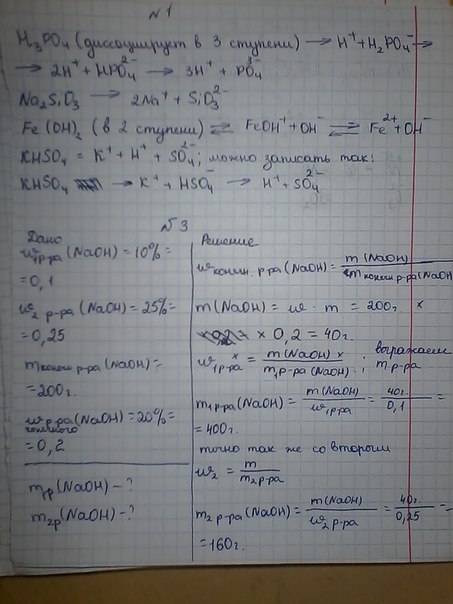 №1
H₃PO₄ (диссоциирует в 3 ступени) → H⁺ + H₂PO₄⁻ →
→ 2H⁺ + HPO₄²⁻ → 3H⁺ + PO₄³⁻
Na₂SiO₃ → 2Na⁺ + SiO₃²⁻
Fe(OH)₂ (в 2 ступени) ⇄ FeOH⁺ + OH⁻ ⇄ Fe²⁺ + OH⁻
KHSO₄ = K⁺ + H⁺ + SO₄²⁻; можно записать так:
KHSO₄ → K⁺ + HSO₄⁻ → H⁺ + SO₄²⁻
№3
Дано
w₁р-ра (NaOH) = 10% =
= 0,1
w₂ р-ра (NaOH) = 25% =
= 0,25
mконечн р-ра (NaOH) =
= 200г.
wр-ра (NaOH) = 20% =
конечного
= 0,2
m₁р (NaOH) - ?
m₂р (NaOH) - ?
Решение
wконечн. р-ра (NaOH) = m (NaOH) / mконечн р-ра (NaOH)
m (NaOH) = w · m = 200г ×
× 0,2 = 40г.
w₁р-ра = m (NaOH) / m₁р-ра (NaOH) ; выражаем
m р-ра
m₁р-ра (NaOH) = m (NaOH) / w₁р-ра = 40г. / 0,1 =
= 400г.
точно так же со вторым
w₂ = m / m₂р-ра
m₂ р-ра (NaOH) = m (NaOH) / w₂ р-ра = 40г. / 0,25 =
= 160г.